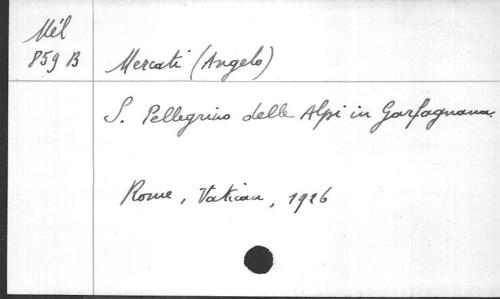 Mél
859 B
Mercati (Angelo)
S. Pellegrino delle Alpi in Garfagnana.
Rome, Vatican, 1926